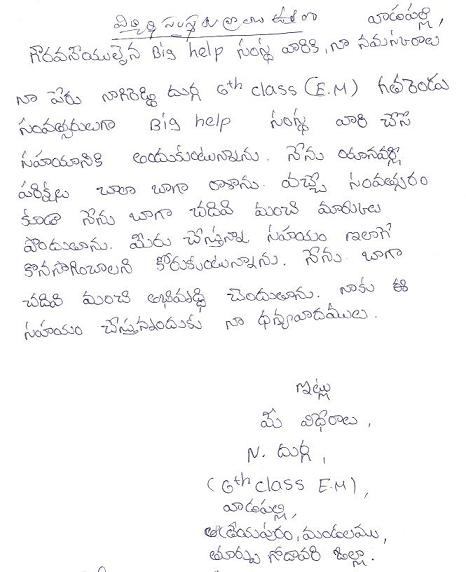 విద్యార్థి సంస్థకు రాయు ఉత్తరం వాడపల్లి,
గౌరవనీయులైన Big help సంస్థ వారికి, నా నమస్కారాలు
నా పేరు నాగిరెడ్డి దుర్గ 6th class (E.M) గతరెండు
సంవత్సరులుగా Big help సంస్థ వారి చేసే
సహయానికి అందుకుంటున్నాను. నేను యానివర్లి
పరీక్షలు చాలా బాగా రాశాను. వచ్చే సంవత్సరం
కూడా నేను బాగా చదివి మంచి మారుకులు
పొందుతాను. మీరు చేస్తున్న సహయం ఇలాగే
కొనసాగించాలని కోరుకుంటున్నాను. నేను బాగా
చదివి మంచి అభివృద్ధి చెందుతాను. నాకు ఈ
సహయం చేస్తున్నందుకు నా ధన్యావాదములు.
ఇట్లు
మీ విధేరాలు,
N. దుర్గ,
(6th class E.M),
వాడపల్లి,
ఆత్రేయపురం, మండలము,
తూర్పు గోదావరి జిల్లా.